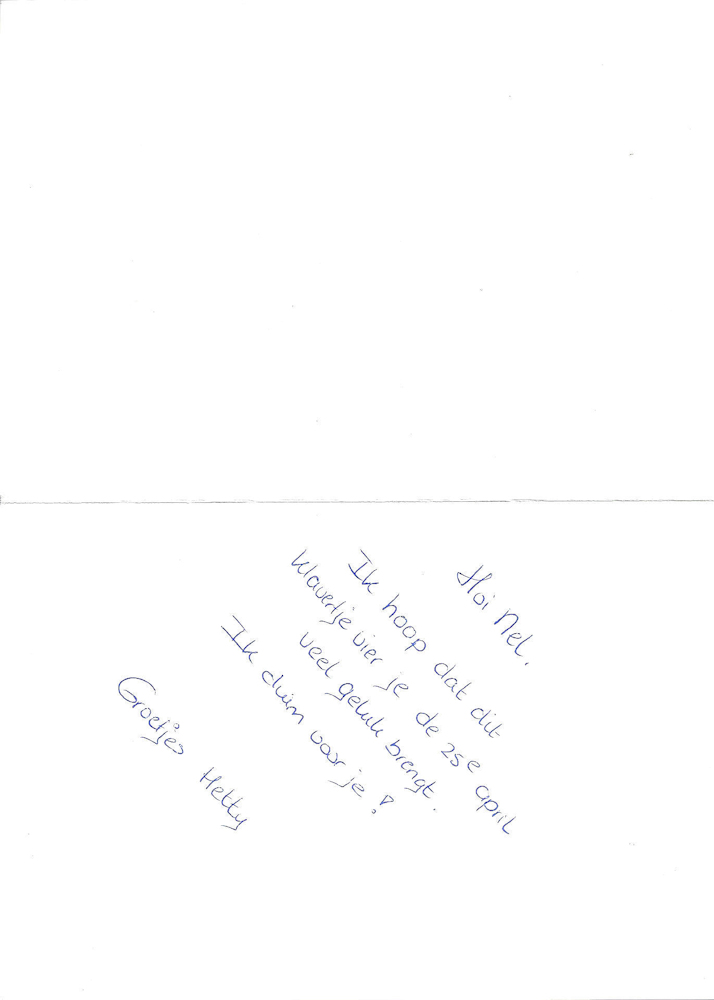 Hoi Nel.
Ik hoop dat dit
klavertje vier je de 25e april
veel geluk brengt.
Ik duim voor je!
Groetjes Hetty